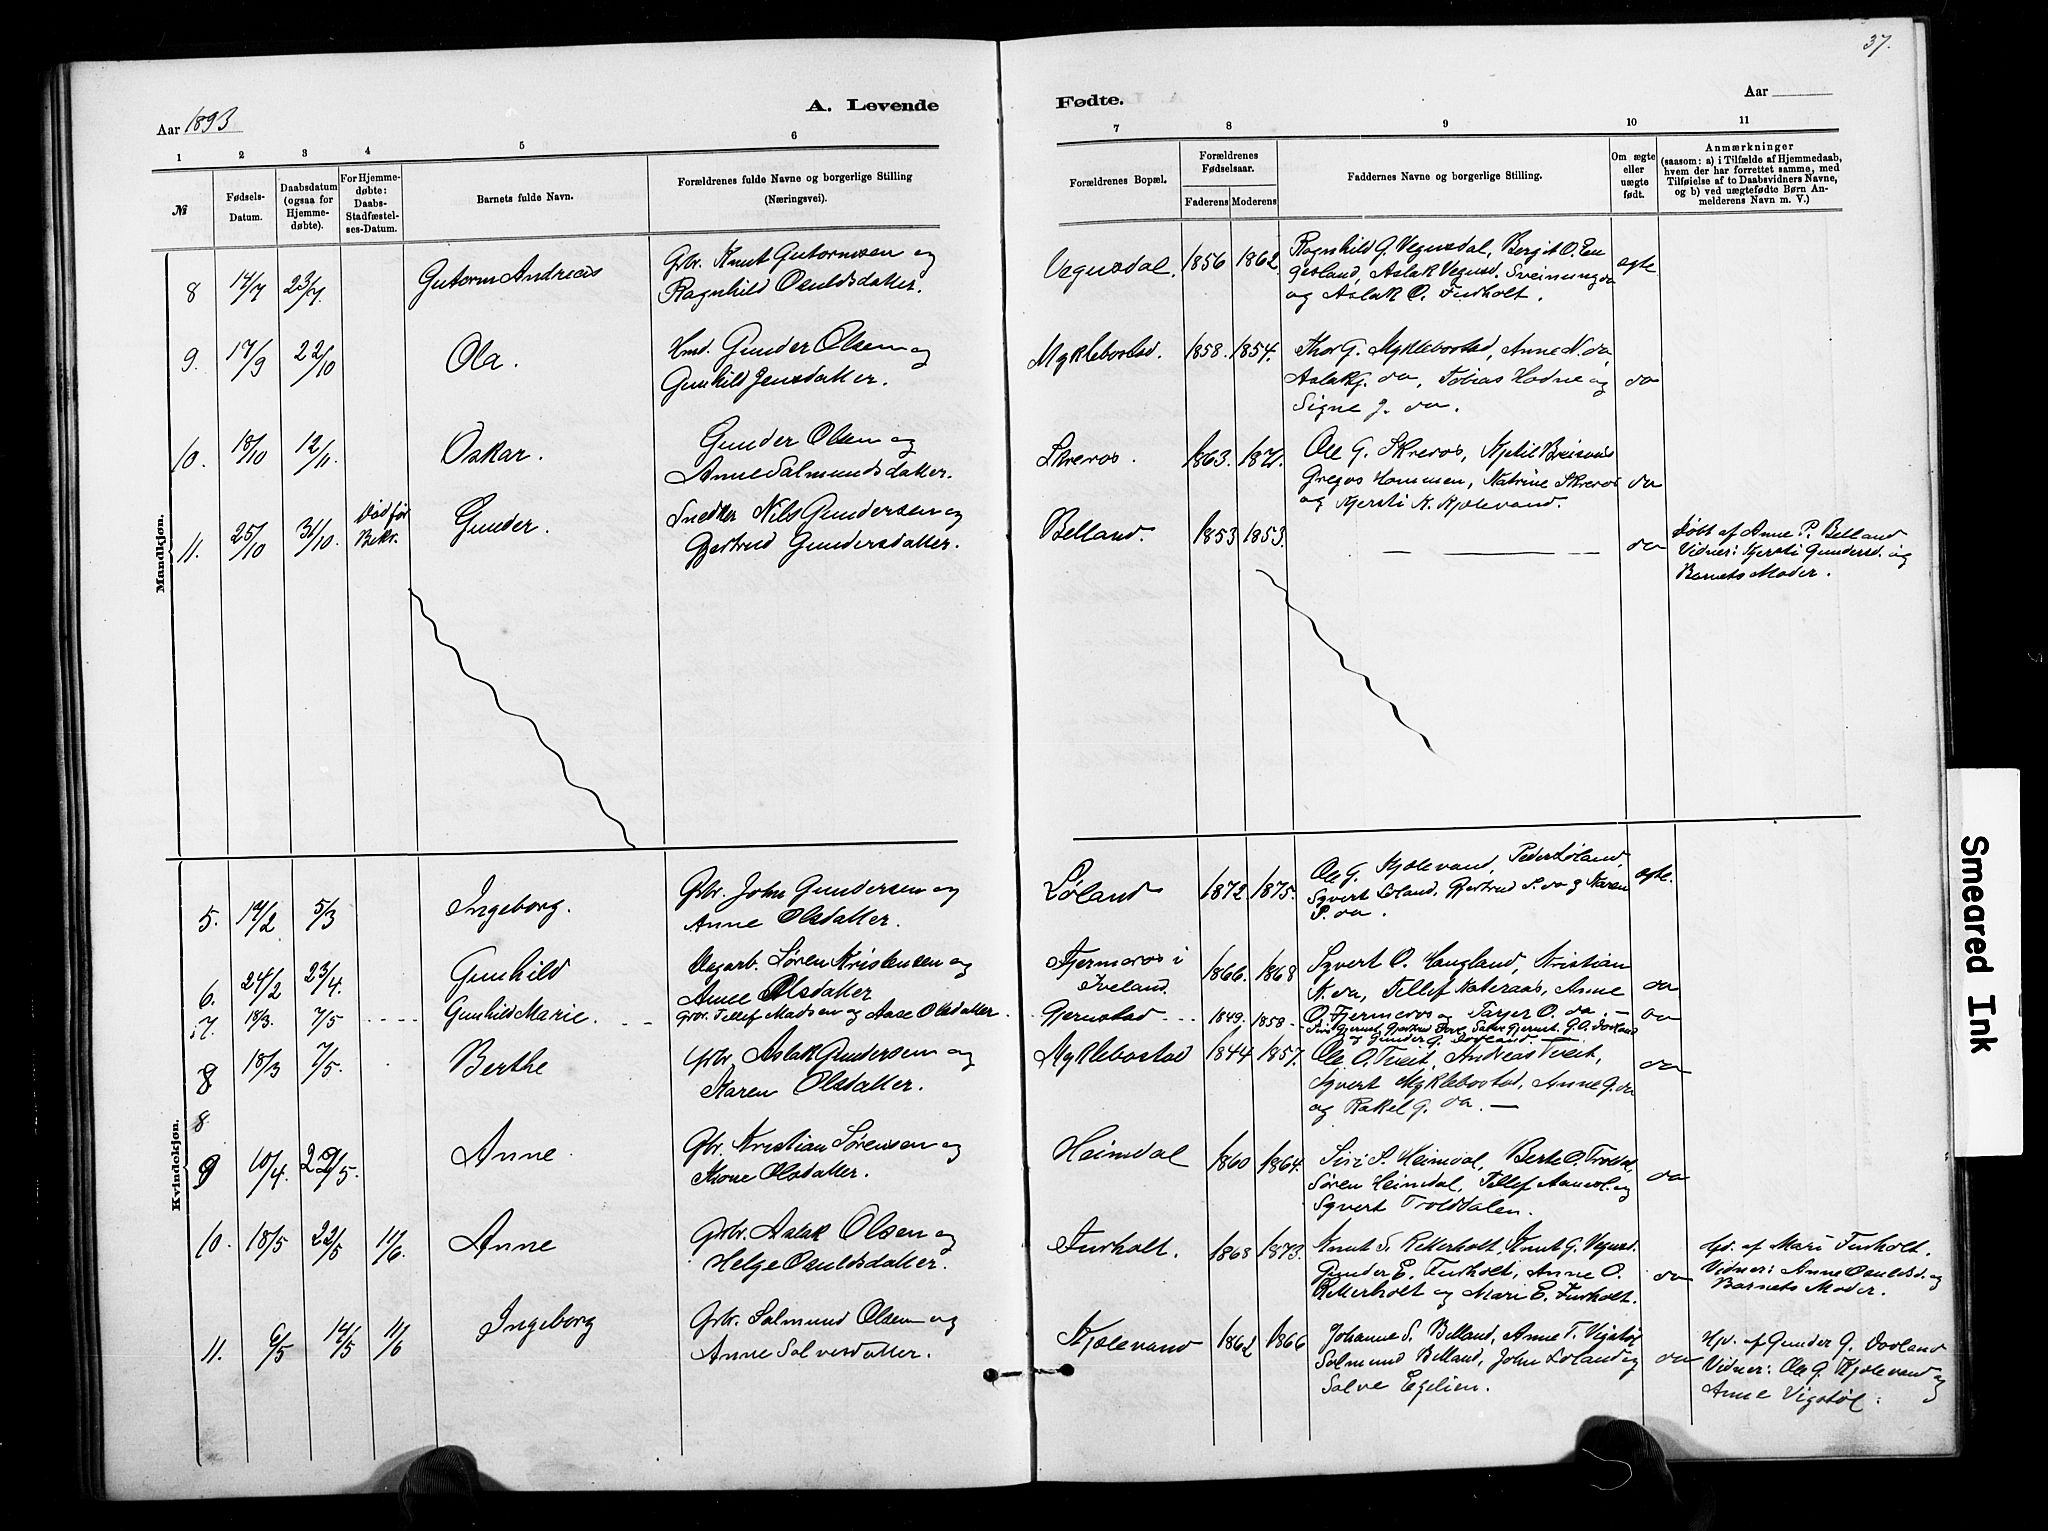 37.
Aar 1893
A. Levende
Fødte.
Aar
1 2 3 4 5 6 7 8 9 10 11
№
Fødsels-Datum.
Daabsdatum (ogsaa for Hjemme-døbte).
For Hjemme-døbte: Daabs-Stadfæstel-ses-Datum.
Barnets fulde Navn.
Forældrenes fulde Navne og borgerlige Stilling (Næringsvei).
Forældrenes Bopæl.
Forældrenes Fødselsaar.
Faderens Moderens
Faddernes Navne og borgerlige Stilling.
Om ægte eller uægte født.
Anmærkninger
(saasom: a) i Tilfælde af Hjemmedaab,
hvem der har forrettet samme, med
Tilføielse af to Daabsvidners Navne,
og b) ved uægtefødte Børn An-
melderens Navn m. V.)
Mandkjøn.
8 14/7 23/7 Gutorm Andreas Gbr. Knut Gutormsen og
Ragnhild Osuldsdatter. Vegusdal. 1856 1862. Ragnhild G. Vegusdal, Bergit O. En
gesland, Aslak Vegusd. Sveinung do
og Aslak O. Furholt. ægte
9. 17/9 22/10 Ola. Hmd. Gunder Olsen og
Gunhild Jensdatter. Myklebostad. 1858. 1854. Thor G. Myklebostad, Anne N. do,
Aslak G. do, Tobias Hodne og
Signe J. do. do
10. 18/10 12/11. Oskar. Gunder Olsen og
Anne Salmundsdatter. Skreros. 1863. 1871. Ole G. Skreros, Kjetil
Gregos Hommen, Katrine Skreros
og Kjersti K. Kjølevand. do
11. 25/10 31/10. Død før
Bekr. Gunder. Snedker Nils Gundersen og
Gjertrud Gundersdatter. Belland. 1853 1853. — — — do
Døbt af Anne P. Belland
Vidner: Kjersti Gundersd. og
Barnets Moder.
Kvindekjøn.
5. 19/2 5/3 Ingeborg. Gbr. John Gundersen og
Anne Olsdatter. Løland 1872. 1875. Ole G. Kjølevand, Peder Løland,
Syvert Løland, Gjertrud S. do og Karen
S. do. ægte.
6. 24/2 23/4. Gunhild Dagarb. Søren Kristensen og
Anne Olsdatter Fjermeros i
Iveland. 1866. 1868 Syvert O. Haugland, Kristian
K. do, Tellef Kateraas, Anne
O. Fjermeros og Tarjer O. do. — do
7. 18/3. 7/5 Gunhild Marie. Gbr. Tellef Madsen og Aase Olsdatter. Gjernstad. 1849. 1858
og Gunder G. Dovland. do
8 18/3 7/5. Berthe Gbr. Aslak Gundersen og
Karen Olsdatter. Myklebostad 1844 1857. Ole O. Tveit, Andreas Tveit,
Syvert Myklebostad, Anne G. do
og Rakel G. do. — do
8
9 10/4. 22/5. Anne Gbr. Kristian Sørensen og
Thone Olsdatter. Heimdal 1860 1864. Siri S. Heimdal, Berte O. Troldal
Søren Heimdal, Tellef og
Syvert Trolddalen. do
10. 18/5 22/5 11/6. Anne Gbr. Aslak Olsen og
Helge Osuldsdatter. Furholt. 1868 1873. Knut S. Retterholt, Knut G. Vegusd.
Gunder E. Furholt, Anne O.
Retterholt og Mari E. Furholt. do
Hjd. af Mari Furholt.
Vidner: Anne Osuldsd. og
Barnets Moder.
11. 6/5 14/5 11/6 Ingeborg Gbr. Salmund Olsen og
Anne Salvesdatter. Kjølevand 1862 1866 Johanne S. Belland, Anne T. Vigstøl
Salmund Belland, John Løland og
Salve Egelien. do
Hjd. af Gunder G. Dovland
Vidner: Ole G. Kjølevand og
Anne Vigstøl.
Smeared Ink